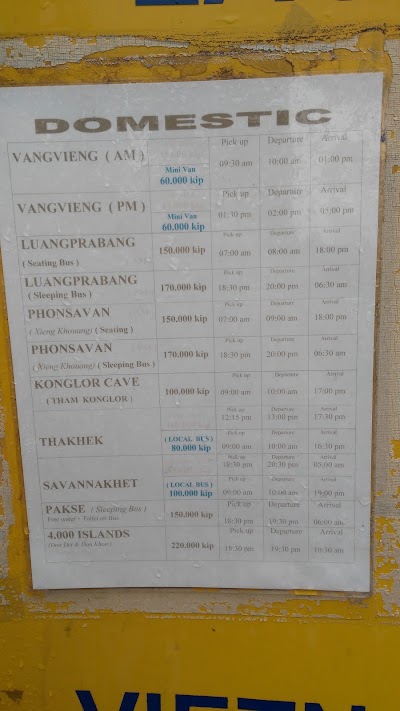 DOMESTIC
Pick up Departure Arrival
VANGVIENG ( AM ) Mini Van 60.000 kip 09:30 am 10:00 am 01:00 pm
Pick up Departure Arrival
VANGVIENG ( PM ) Mini Van 60.000 kip 01:30 pm 02:00 pm 05:00 pm
Pick up Departure Arrival
LUANGPRABANG 150.000 kip 07:00 am 08:00 am 18:00 pm
( Seating Bus )
Pick up Departure Arrival
LUANGPRABANG 170.000 kip 18:30 pm 20:00 pm 06:30 am
( Sleeping Bus )
Pick up Departure Arrival
PHONSAVAN 150.000 kip 07:00 am 09:00 am 18:00 pm
(Xieng Khouang) ( Seating )
Pick up Departure Arrival
PHONSAVAN 170.000 kip 18:30 pm 20:00 pm 06:30 am
(Xieng Khouang) ( Sleeping Bus )
Pick up Departure Arrival
KONGLOR CAVE 100.000 kip 09:00 am 10:00 am 17:00 pm
( THAM KONGLOR )
Pick up Departure Arrival
12:15 pm 13:00 pm 17:30 pm
Pick up Departure Arrival
THAKHEK ( LOCAL BUS ) 80.000 kip 09:00 am 10:00 am 16:30 pm
Pick up Departure Arrival
18:30 pm 20:30 pm 05:00 am
Pick up Departure Arrival
SAVANNAKHET ( LOCAL BUS ) 100.000 kip 09:00 am 10:00 am 19:00 pm
Pick up Departure Arrival
PAKSE ( Sleeping Bus ) 150.000 kip 18:30 pm 19:30 pm 06:00 am
Pick up Departure Arrival
4.000 ISLANDS 220.000 kip 19:30 pm 10:30 am
VIETN